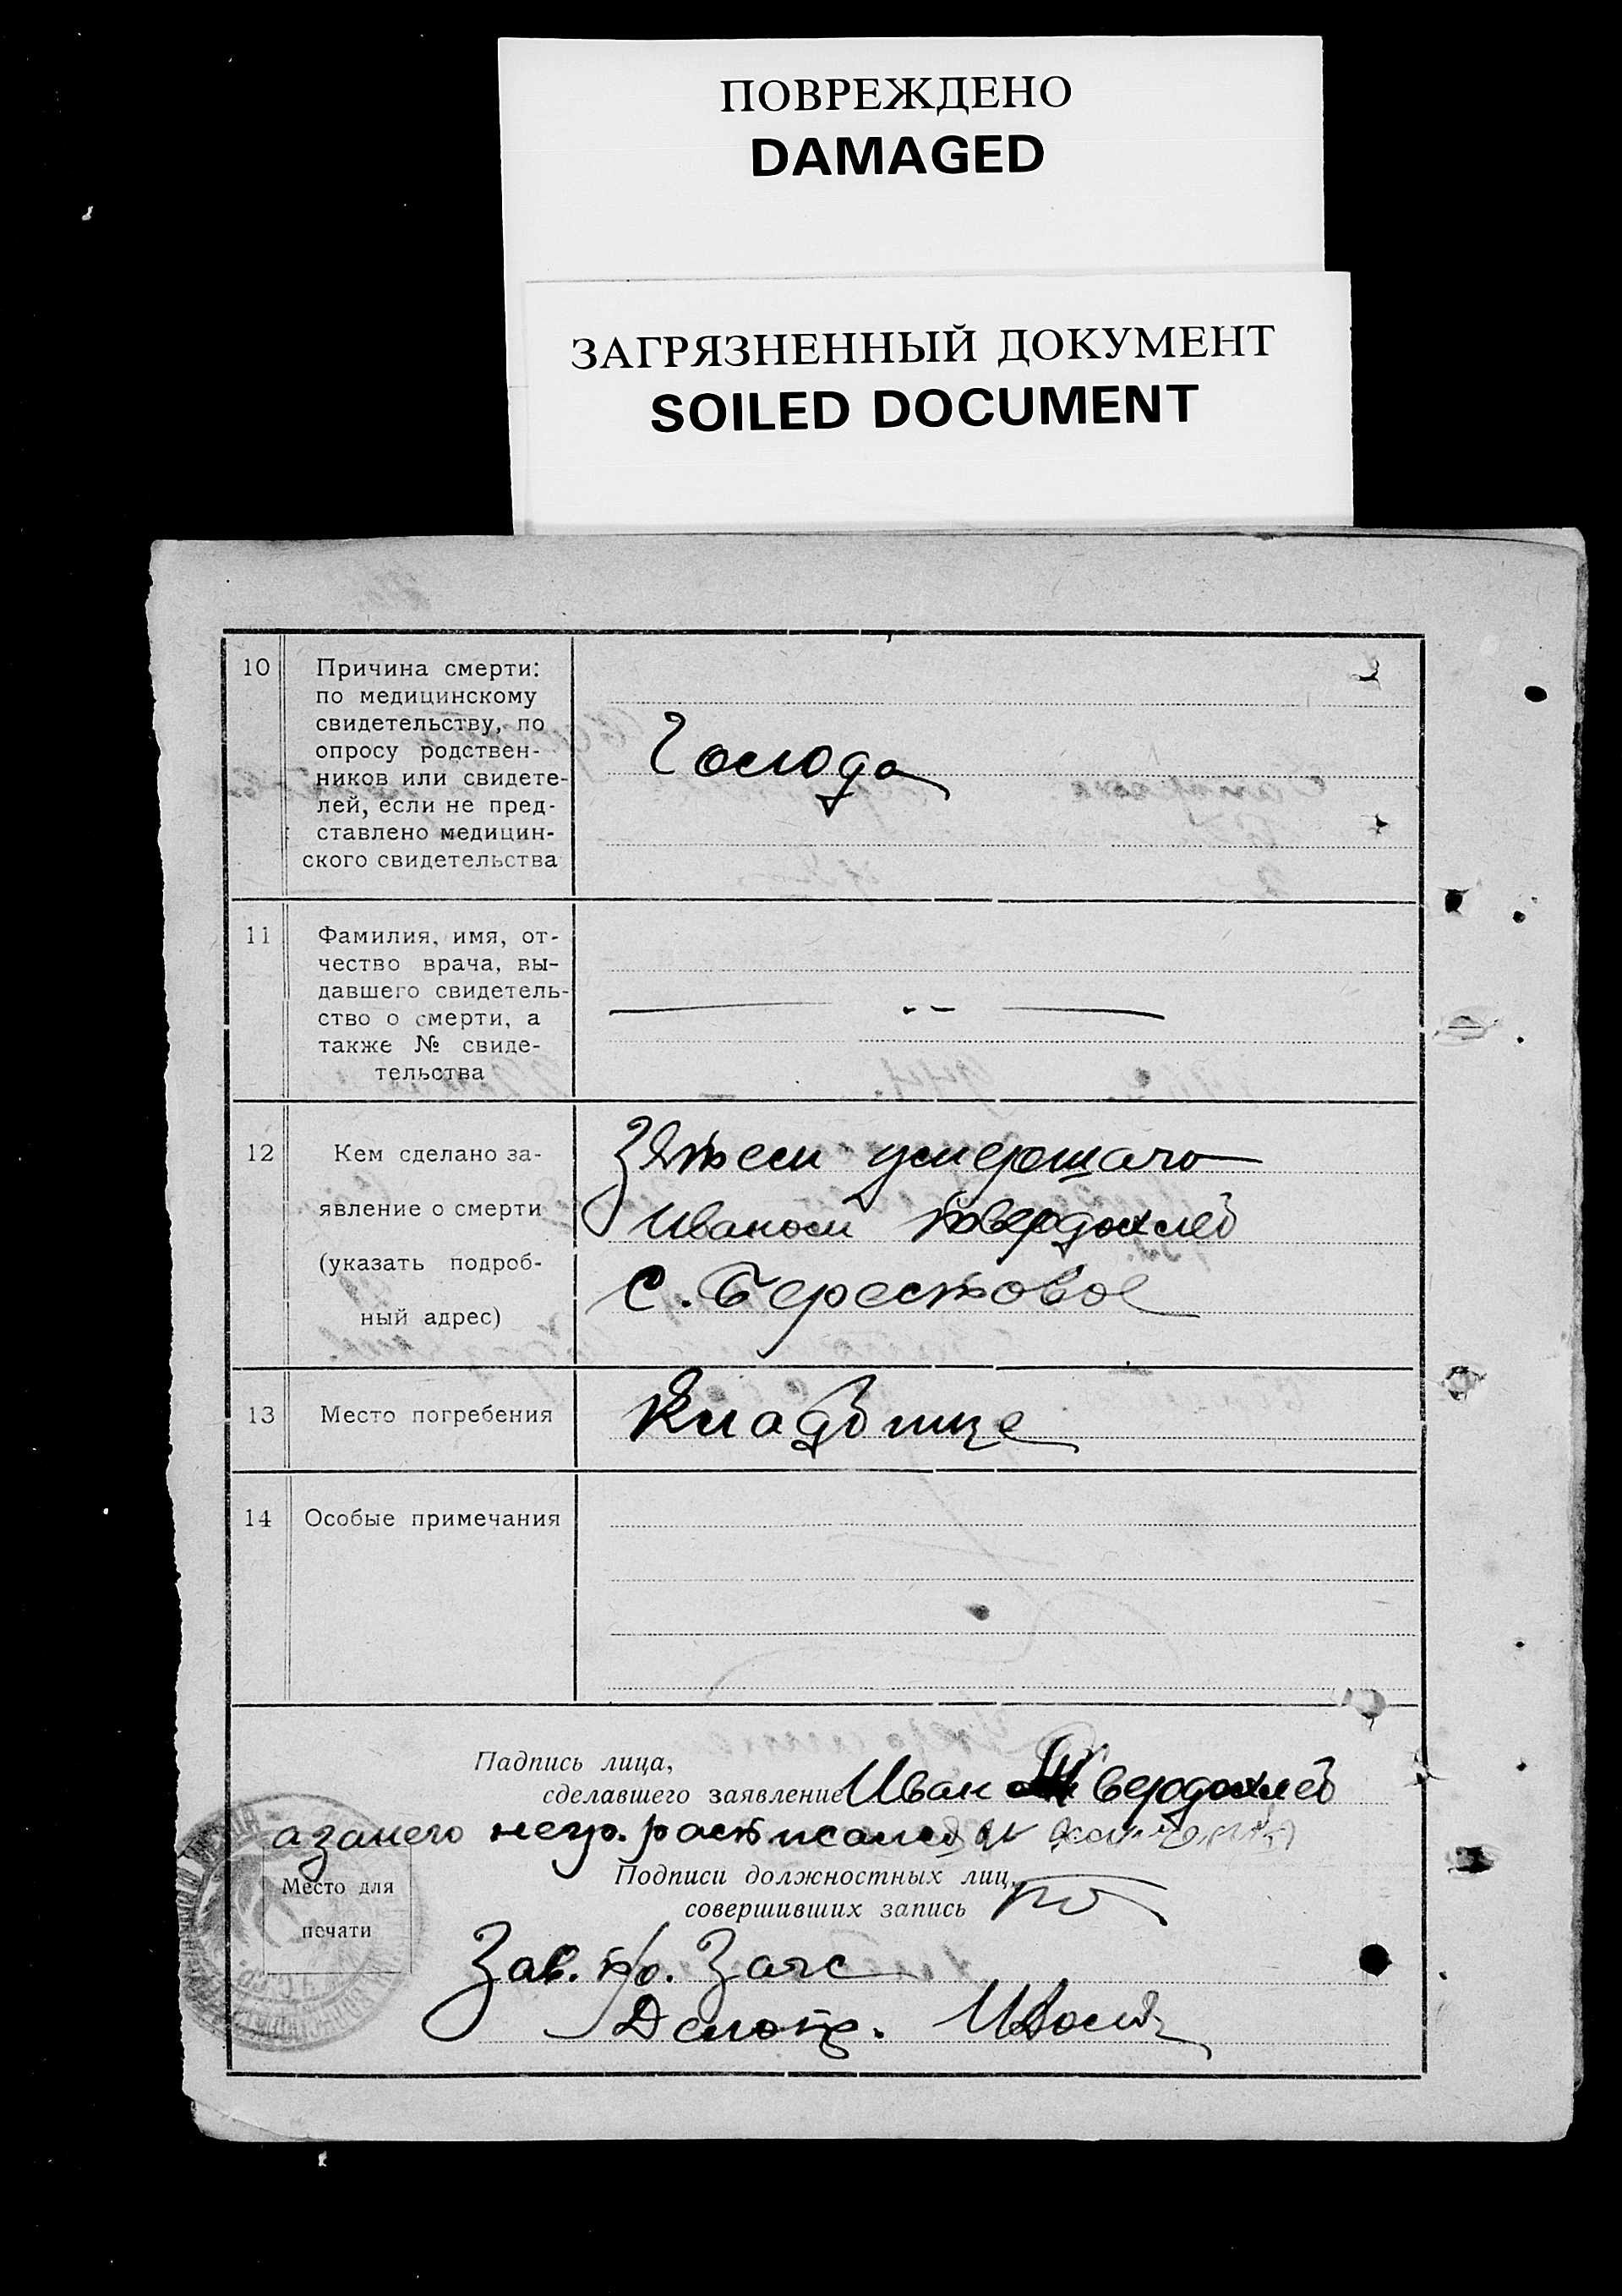 ПОВРЕЖДЕНО
DAMAGED
ЗАГРЯЗНЕННЫЙ ДОКУМЕНТ
SOILED DOCUMENT
10
Причина смерти:
по медицинскому
свидетельству, по
опросу родствен-
ников или свидете-
лей, если не пред-
ставлено медицин-
ского свидетельства
Голода
11
Фамилия, имя, от-
чество врача, вы-
давшего свидетель-
ство о смерти, а
также № свиде-
тельства
12
Кем сделано за-
явление о смерти
(указать подроб-
ный адрес)
Зятем умершаго
Иваном Твердохлеб
С. Берестовое
13
Место погребения
Кладбище
14
Особые примечания
Падпись лица,
сделавшего заявление Иван Твердохлеб
а занего негр. росписался
Подписи должностных лиц,
совершивших запись
Место для
печати
Зав. Загс